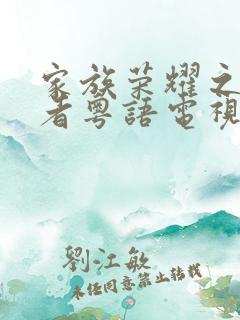 家族荣耀之
者粤語電視
劉江敏
未经同意禁止转载